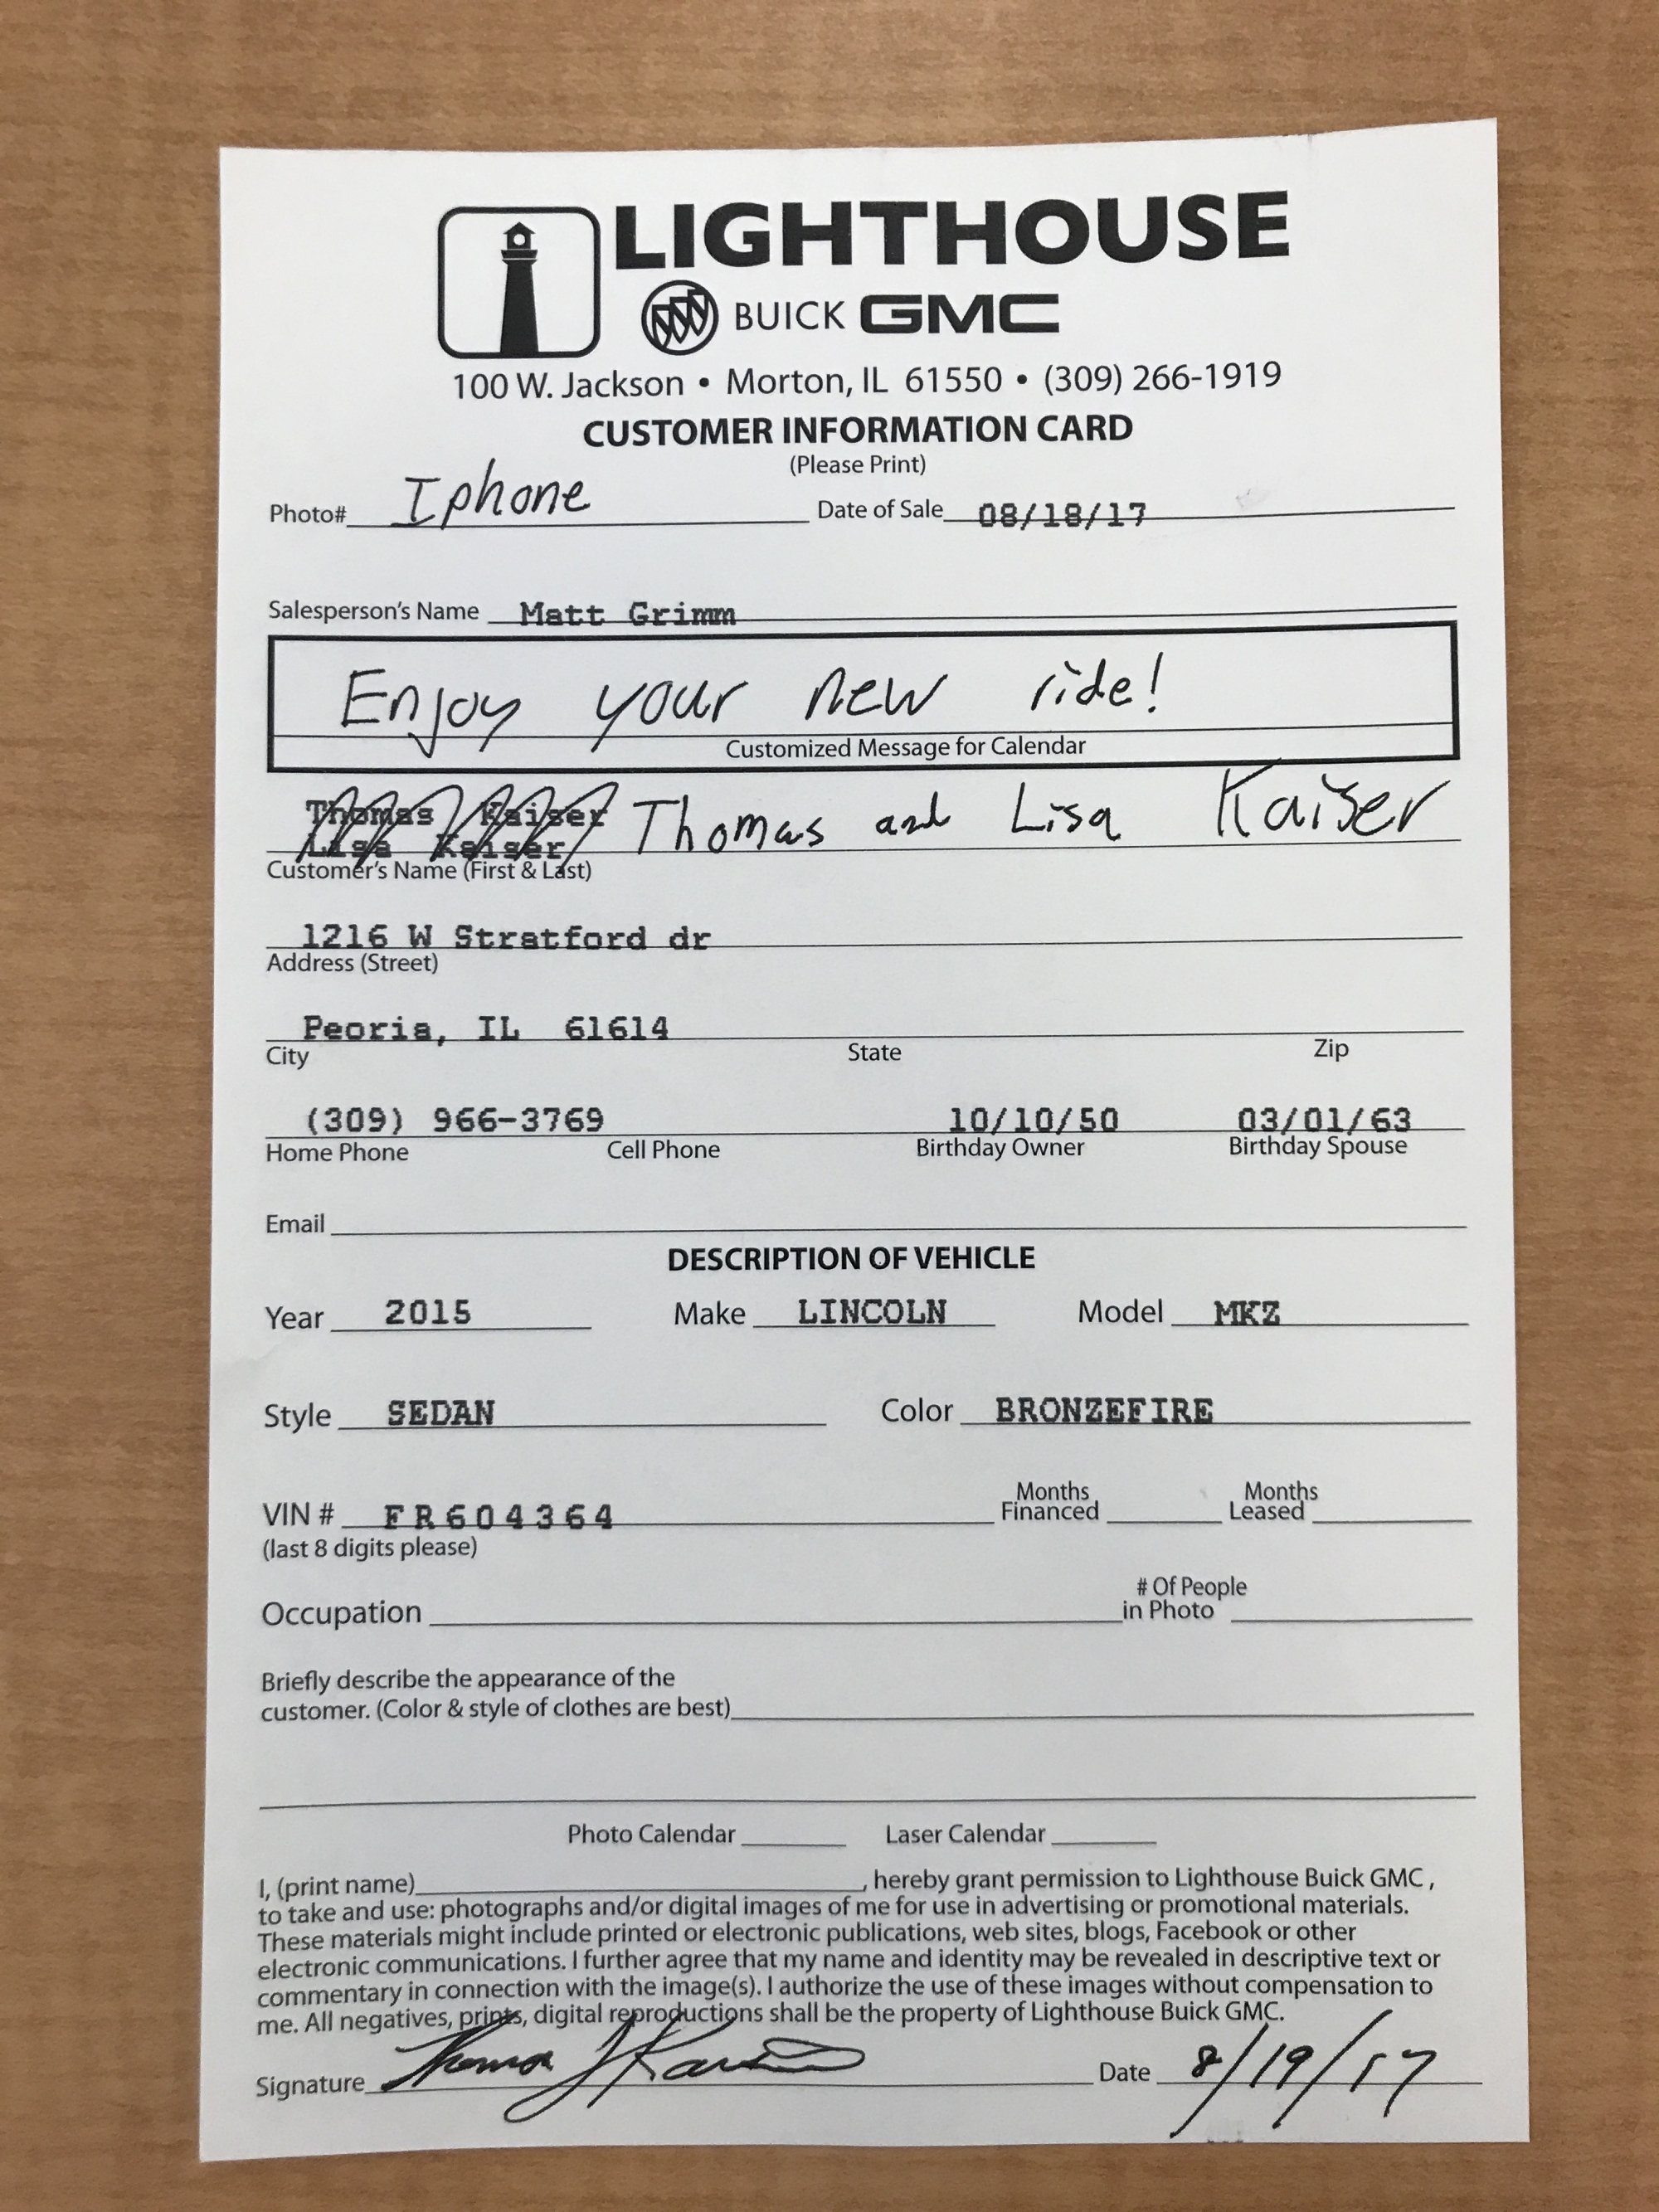 LIGHTHOUSE
BUICK GMC
100 W. Jackson • Morton, IL 61550 • (309) 266-1919
CUSTOMER INFORMATION CARD
(Please Print)
Photo# Iphone Date of Sale 08/18/17
Salesperson's Name Matt Grimm
Enjoy your new ride!
Customized Message for Calendar
Thomas Kaiser Thomas and Lisa Kaiser
Lisa Kaiser
Customer's Name (First & Last)
1216 W Stratford dr
Address (Street)
Peoria, IL 61614
City State Zip
(309) 966-3769 10/10/50 03/01/63
Home Phone Cell Phone Birthday Owner Birthday Spouse
Email
DESCRIPTION OF VEHICLE
Year 2015 Make LINCOLN Model MKZ
Style SEDAN Color BRONZEFIRE
VIN # FR604364 Months Financed Months Leased
(last 8 digits please)
Occupation # Of People in Photo
Briefly describe the appearance of the
customer. (Color & style of clothes are best)
Photo Calendar Laser Calendar
I, (print name) , hereby grant permission to Lighthouse Buick GMC ,
to take and use: photographs and/or digital images of me for use in advertising or promotional materials.
These materials might include printed or electronic publications, web sites, blogs, Facebook or other
electronic communications. I further agree that my name and identity may be revealed in descriptive text or
commentary in connection with the image(s). I authorize the use of these images without compensation to
me. All negatives, prints, digital reproductions shall be the property of Lighthouse Buick GMC.
Signature Thomas J Kaiser Date 8/19/17